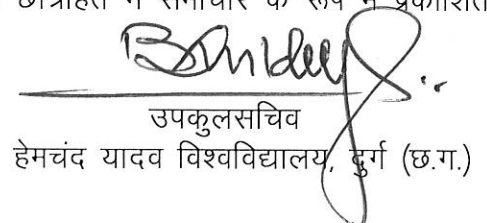 छात्रहित में समाचार के रूप में प्रकाशित
उपकुलसचिव
हेमचंद यादव विश्वविद्यालय, दुर्ग (छ.ग.)